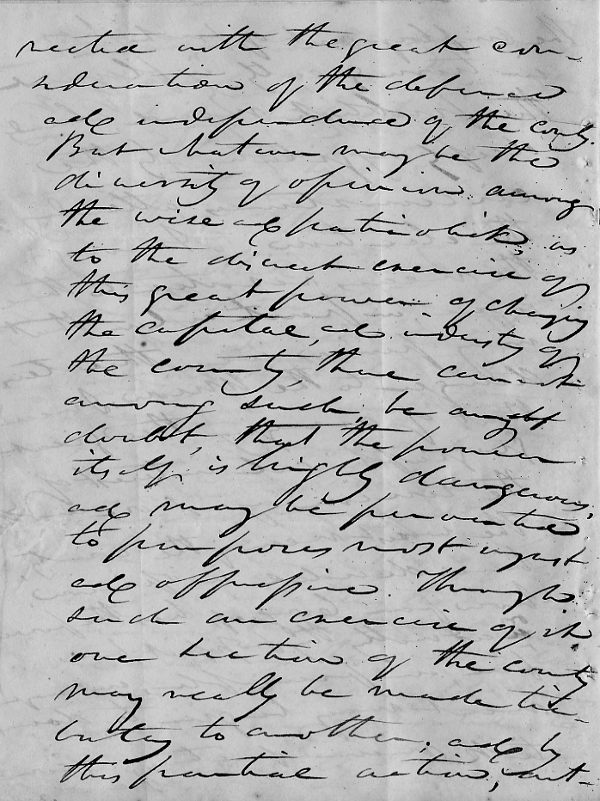 nected with the great con-
sideration of the defence
and independence of the county.
But whatever may be the
diversity of opinion among
the wise and patriotick, as
to the discreet exercise of
this great power of changing
the capital, and industry of
the county, there cannot
among such, be any
doubt, that the power
itself, is highly dangerous,
and may be perverted
to purposes most unjust
and oppressive. Through
such an exercise of it
one section of the county
may really be made tri-
butary to another, and by
this partial action,